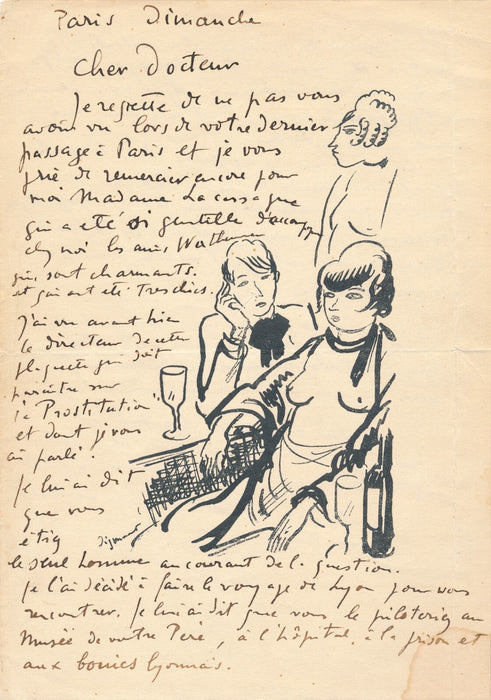 Paris Dimanche
Cher Docteur
Je regrette de ne pas vous
avoir vu lors de votre dernier
passage à Paris et je vous
prie de remercier encore pour
moi Madame Lacassagne
qui a été si gentille d'accomp
chez moi les amis
qui sont charmants.
et qui ont été très chics.
J'ai vu avant hier
le directeur de cette
plaquette qui doit
paraître sur
"la Prostitution"
et dont je vous
ai parlé.
Je lui ai dit
que vous
étiez
le seul homme au courant de la question.
Je l'ai décidé à faire le voyage de Lyon pour vous
rencontrer. Je lui ai dit que vous le piloteriez au
Musée de votre Père, à l'hôpital, à la prison et
aux bouics lyonnais.